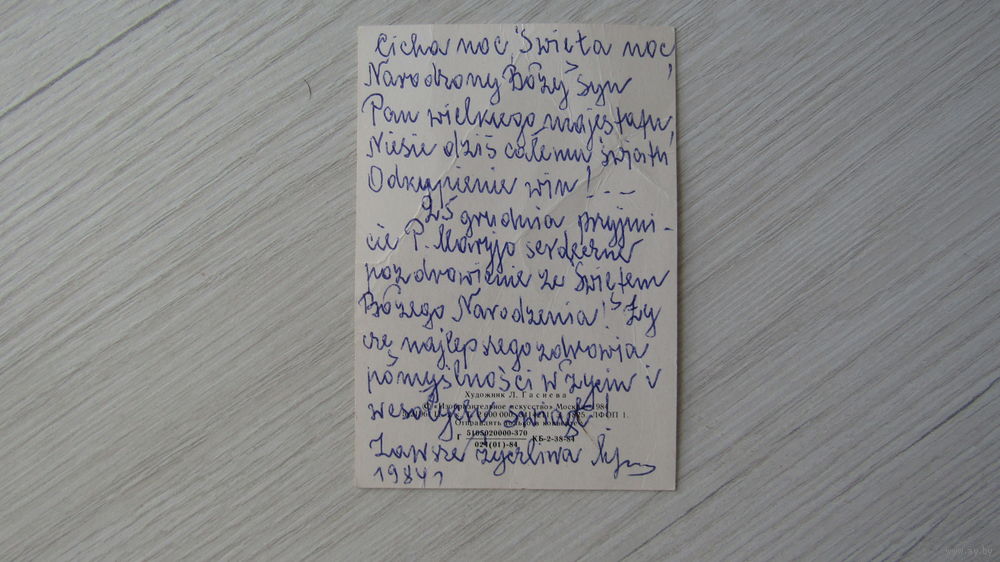 Cicha noc, Święta noc,
Narodzony Boży Syn
Pan wielkiego majestatu,
Niesie dziś całemu światu
Odkupienie win!...
25 grudnia przyjmi-
cie P. Maryjo serdeczne
pozdrowienie ze Świętem
Bożego Narodzenia! Ży
czę najlepszego zdrowia
pomyślności w życiu i
wesołych świąt!
Художник Л. Гасиева
© «Изобразительное искусство» Москва 1984
Отправлять только в конверте
Г 5105020000-370 КБ-2-38-84
024(01)-84
Zawsze życzliwa
1984 r
www.ay.by